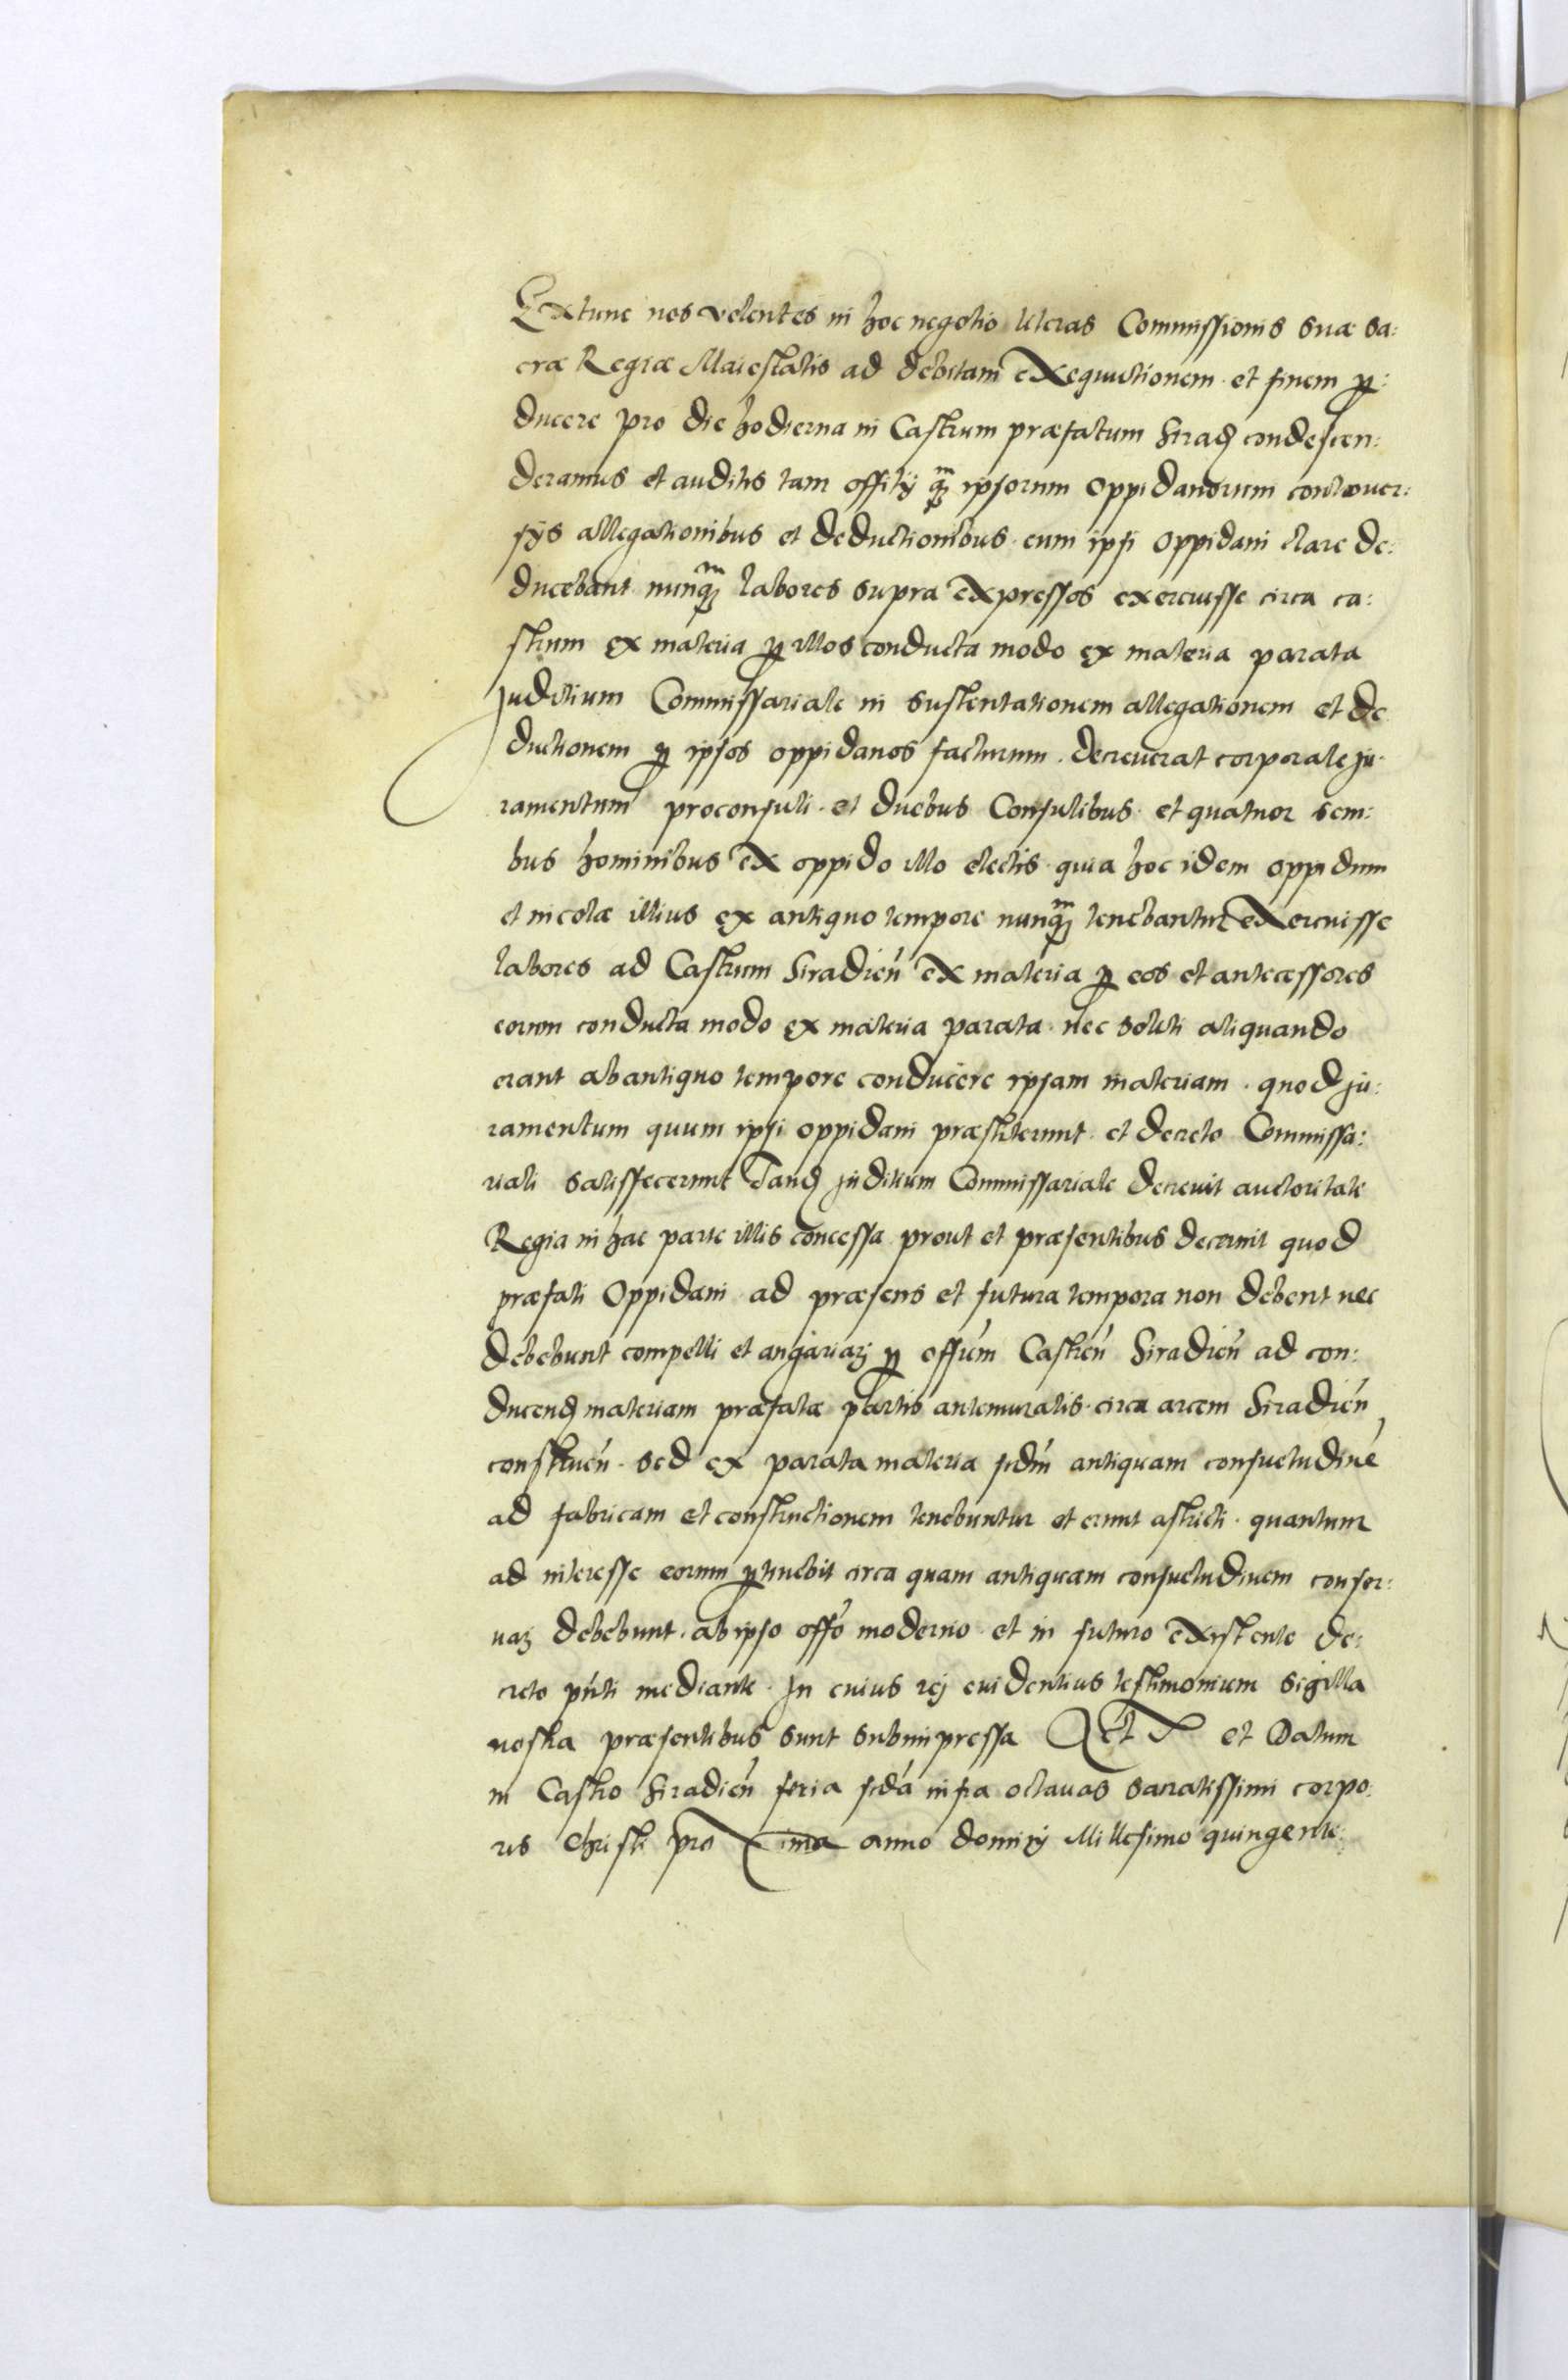 Extunc nos volentes in hoc negotio literas Commissionis suæ sa:
cræ Regiæ Maiestatis ad debitam exequutionem et finem ꝑ:
ducere pro die hodierna in Castrum præfatum Sirad condescen:
deramus et auditis tam offitij qͣm ipsorum oppidanorum controver:
sijs allegationibus et deductionibus cum ipsi oppidani clare de:
ducebant nunqͣm labores supra expressos exercuisse circa ca:
strum ex materia ꝑ illos conducta modo ex materia parata
Juditium Commissariale in sustentationem allegationem et de
ductionem ꝑ ipsos oppidanos facturum decreverat corporale ju:
ramentum proconsuli et duobus Consulibus et quatuor sem:
bus hominibus ex oppido illo electis quia hoc idem oppidum
et incolæ illius ex antiquo tempore nunqͣm tenebantur exercuisse
labores ad Castrum Siradien̄ ex materia ꝑ eos et antecessores
eorum conducta modo ex materia parata nec soliti aliquando
erant ab antiquo tempore conducere ipsam materiam quod ju:
ramentum quum ipsi oppidani præstiterunt et decreto Commissa:
riali satisfecerunt Tand Juditium Commissariale decrevit auctoritate
Regia in hac parte illis concessa prout et præsentibus decernit quod
præfati Oppidani ad præsens et futura tempora non debent nec
debebunt compelli et angariaꝝ ꝑ offum Castren̄ Siradien̄ ad con:
ducend materiam præfatæ partis antemuralis circa arcem Siradien̄
construen̄ sed ex parata materia scdm̄ antiquam consuetudinē
ad fabricam et constructionem tenebuntur et erunt astricti quantum
ad interesse eorum ꝑtinebit circa quam antiquam consuetudinem conser:
vaꝝ debebunt ab ipso offō moderno et in futuro existente de:
creto pn̄ti mediante In cuius rej evidentius testimonium sigilla
nostra præsentibus sunt subimpressa Act et Datum
in Castro Siradien̄ feria scda infra octavas sacratissimi corpo:
ris Christi proxima anno dominj Millesimo quingente: